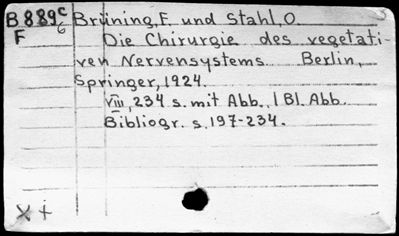 B889c/6 Brüning, F. und Stahl, O.
F Die Chirurgie des vegetati-
ven Nervensystems. Berlin,
Springer, 1924.
VIII, 234 s. mit Abb., 1 Bl. Abb.
Bibliogr. s. 197-234.
X +